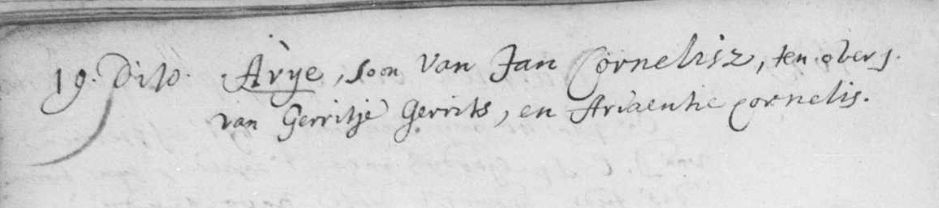 19. Dito. Arye, soon van Jan Cornelisz, ten overs.
van Gerritje Gerrits, en Ariaentie Cornelis.